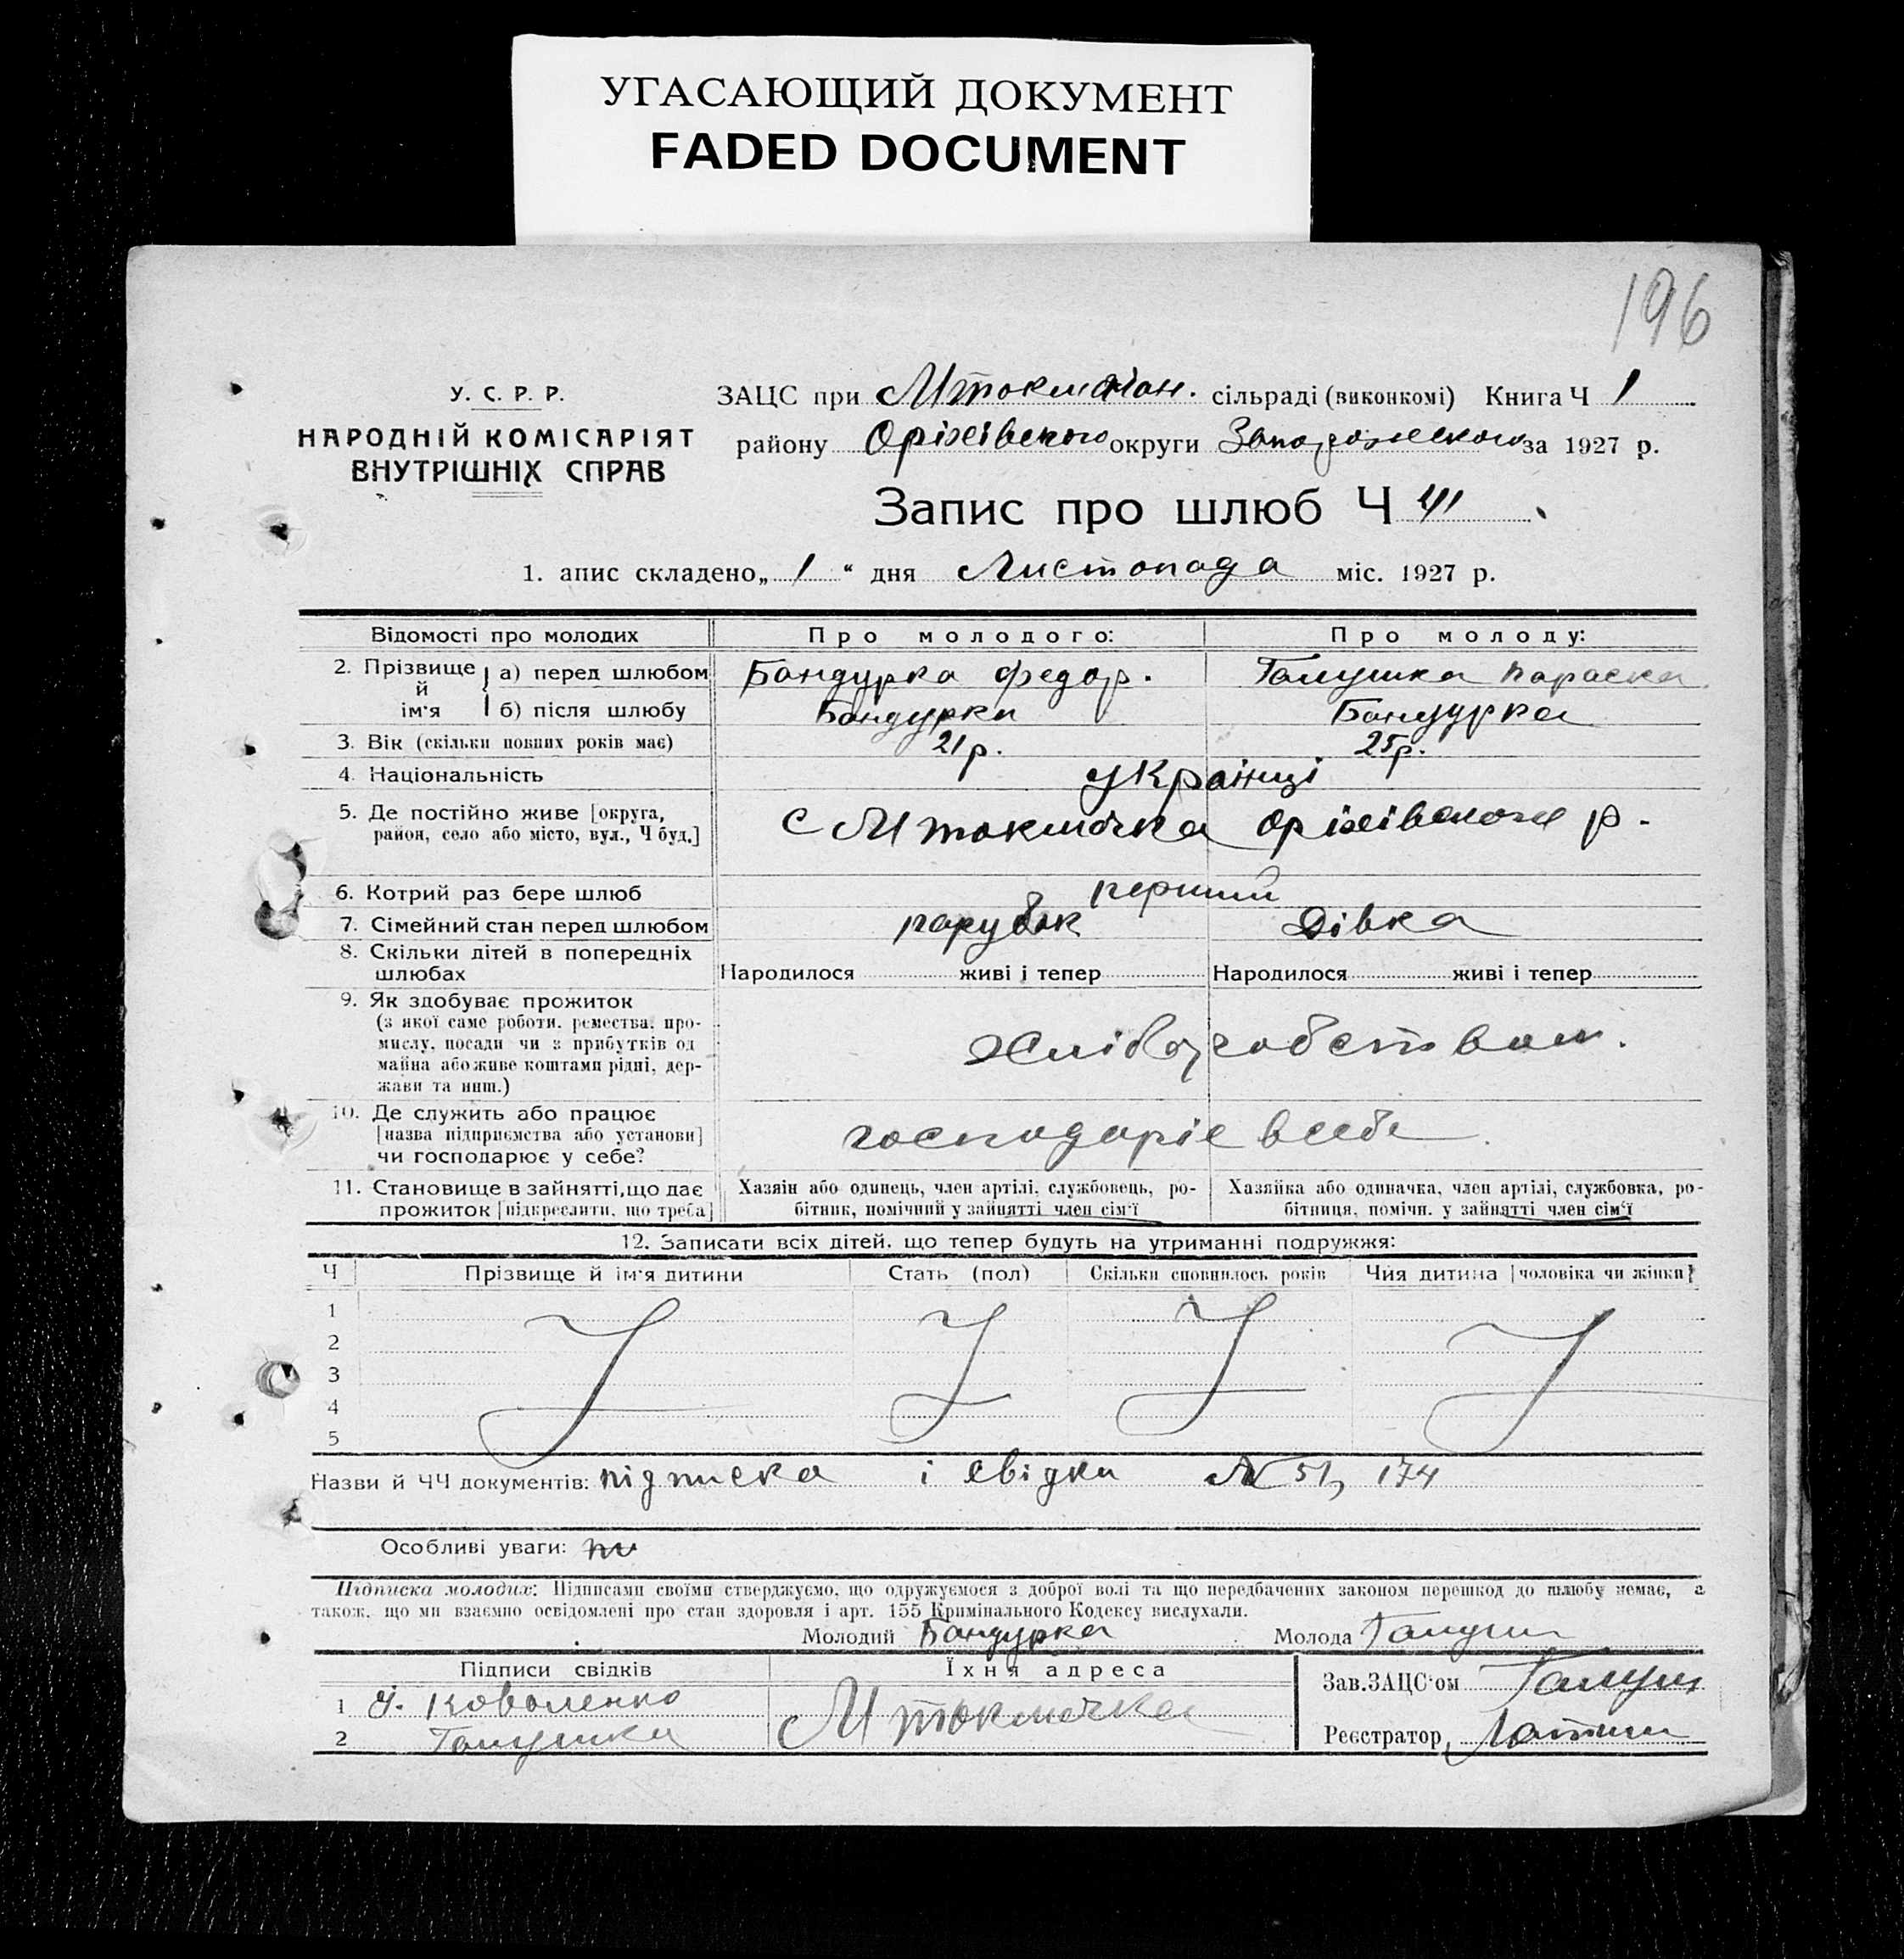 УГАСАЮЩИЙ ДОКУМЕНТ
FADED DOCUMENT
196
У. С. Р. Р.
НАРОДНІЙ КОМІСАРІЯТ
ВНУТРІШНІХ СПРАВ
ЗАЦС при Мтокмачан. сільраді (виконкомі) Книга Ч 1
району Оріхівського округи Запорожського за 1927 р.
Запис про шлюб Ч 41
1. апис складено „ 1 “ дня Листопада міс. 1927 р.
Відомості про молодих Про молодого: Про молоду:
2. Прізвище й ім'я а) перед шлюбом Бандурка Федор. Галушка Параска
б) після шлюбу Бандурка Бандурка
3. Вік (скільки повних років має) 21 р. 25 р.
4. Національність українці
5. Де постійно живе [округа,
район, село або місто, вул., Ч буд.] с Мтокмачка Оріхівського р.
6. Котрий раз бере шлюб перший
7. Сімейний стан перед шлюбом парубок Дівка
8. Скільки дітей в попередніх
шлюбах Народилося живі і тепер Народилося живі і тепер
9. Як здобуває прожиток
(з якої саме роботи. ремества. про-
мислу, посади чи з прибутків од
майна або живе коштами рідні, дер-
жави та инш.)
хліборобством.
10. Де служить або працює
[назва підприємства або установи]
чи господарює у себе?
господаріє в себе
11. Становище в зайнятті, що дає
прожиток [підкреслити, що треба]
Хазяін або одинець, член артілі, службовець, ро-
бітник, помічний у зайнятті член сім'ї
Хазяйка або одиначка, член артілі, службовка, ро-
бітниця, помічн. у зайнятті член сім'ї
12. Записати всіх дітей. що тепер будуть на утриманні подружжя:
Ч Прізвище й ім'я дитини Стать (пол) Скільки сповнилось років Чия дитина [чоловіка чи жінки]
1
2
3
4
5
Назви й ЧЧ документів: підписка і свідки № 51, 174
Особливі уваги:
Підписка молодих: Підписами своїми стверджуємо, що одружуємося з доброї волі та що передбачених законом перешкод до шлюбу немає, а
також, що ми взаємно освідомлені про стан здоровля і арт. 155 Кримінального Кодексу вислухали.
Молодий Бандурка Молода
Підписи свідків Їхня адреса
1 Коваленко Мтокмачка
2 Галушка
Зав. ЗАЦС'ом
Реєстратор